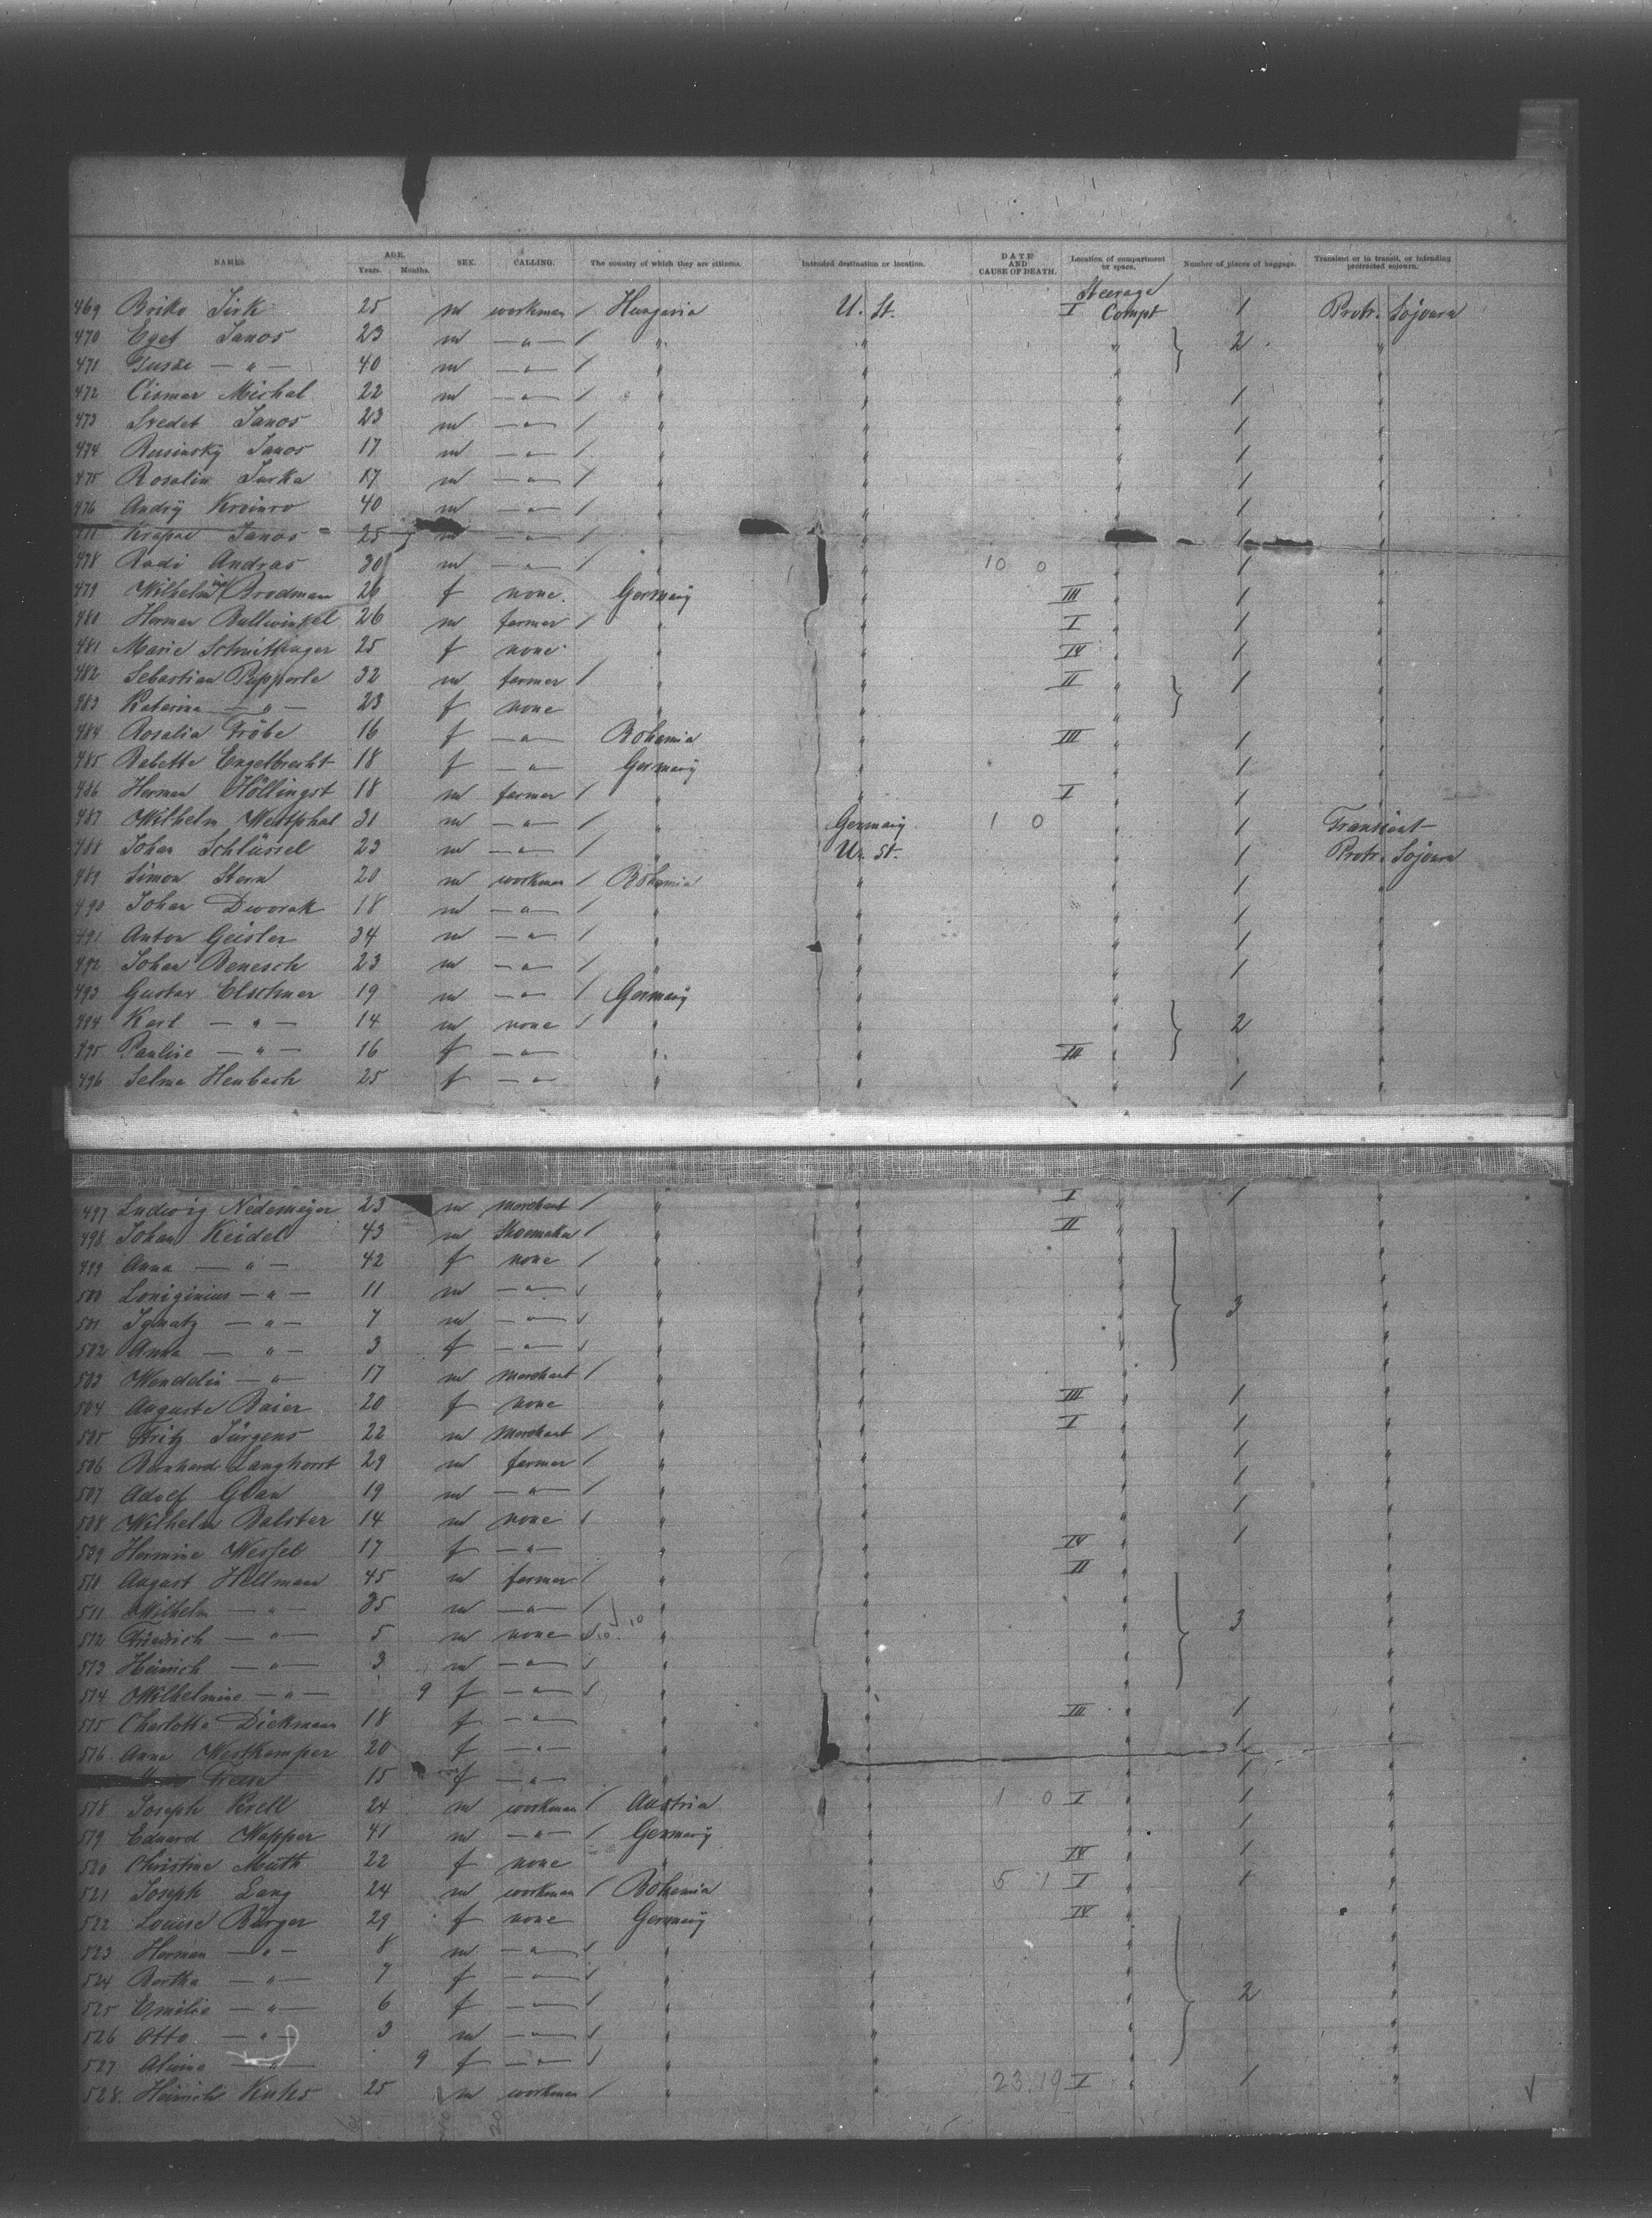 NAMES. AGE. Years. Months. SEX. CALLING. The country of which they are citizens. Intended destination or location. DATE AND CAUSE OF DEATH. Location of compartment or space. Number of pieces of baggage. Transient or in transit, or intending protracted sojourn.
469 Briko Jirk 25 m workman / Hungaria U. St. I Steerage Compt 1 Protr. Sojourn
470 Eget Janos 23 m —"— / " " " 2 "
471 —"— 40 m —"— / " " " "
472 Cismar Michal 22 m —"— / " " " 1 "
473 Sredet Janos 23 m —"— / " " " 1 "
474 Rusinsky Janos 17 m —"— / " " " 1 "
475 Rosalin Jurka 17 m —"— / " " " 1 "
476 Andrý 40 m —"— / " " " 1 "
Krapac Janos 25 m —"— / " " 1 "
478 Radi Andras 30 m —"— / " " 10 0 " 1 "
479 Wilhelmine Brodman 26 f none Germany " III " 1 "
480 Herman Ballwinkel 26 m farmer / " " I " 1 "
481 Marie Schmittinger 25 f none " " IV " 1 "
482 Sebastian Pepperle 32 m farmer / " " II " 1 "
483 Katerina —"— 23 f none " " " "
484 Rosalia Fröbe 16 f —"— Bohemia " III " 1 "
485 Babette Engelbrecht 18 f —"— Germany " " 1 "
486 Herman Höllingst 18 m farmer / " " I " 1 "
487 Wilhelm Westphal 31 m —"— / " Germany 1 0 " 1 Transient
488 Johan Schlüssel 23 m —"— / " U. St. " 1 Protr. Sojourn
489 Simon Stern 20 m workman / Bohemia " " 1 "
490 Johan Dworak 18 m —"— / " " " 1 "
491 Anton Geisler 34 m —"— / " " " 1 "
492 Johan Benesch 23 m —"— / " " " 1 "
493 Gustav Elschner 19 m —"— / Germany " " "
494 Karl —"— 14 m none / " " " 2 "
495 Pauline —"— 16 f —"— " " III " "
496 Selma Heubach 25 f —"— " " " 1 "
497 Ludwig Nedemeyer 23 m merchant / " " I " 1 "
498 Johan Keidel 43 m Shoemaker / " " II " "
499 Anna —"— 42 f none / " " " "
500 Loniginius —"— 11 m —"— / " " " "
501 Ignatz —"— 7 m —"— / " " " 3 "
502 Anna —"— 3 f —"— / " " " "
503 Wendelin —"— 17 m merchant / " " " "
504 Auguste Baier 20 f none " " III " 1 "
505 Fritz Jürgens 22 m merchant / " " I " 1 "
506 Bernhard Langhorst 29 m farmer / " " " 1 "
507 Adolf Glan 19 m —"— / " " " 1 "
508 Wilhelm Balster 14 m none / " " " 1 "
509 Hermine Wessel 17 f —"— " " IV " 1 "
510 August Hellman 45 m farmer / " " II " "
511 Wilhelm —"— 35 m —"— / " " " "
512 Friedrich —"— 5 m none 10 " " " 3 "
513 Heinrich —"— 3 m —"— / " " " "
514 Wilhelmine —"— 9 f —"— / " " " "
515 Charlotte Dickmann 18 f —"— " " III " 1 "
516 Anna Westkamper 20 f —"— " " " 1 "
Freese 15 f —"— " " " 1 "
518 Joseph Krell 24 m workman / Austria " 1 0 I " 1 "
519 Eduard Wapper 41 m —"— / Germany " " 1 "
520 Christine Muth 22 f none " " IV " "
521 Joseph Lang 24 m workman / Bohemia " 5 1 I " 1 "
522 Louise Bürger 29 f none Germany " IV " "
523 Herman —"— 8 m —"— / " " " "
524 Bertha —"— 7 f —"— / " " " "
525 Emilie —"— 6 f —"— / " " " 2 "
526 Otto —"— 3 m —"— / " " " "
527 Alvine —"— 9 f —"— / " " " "
528 Heinrich Kuhs 25 m workman / " " 23.19 I " 1 "